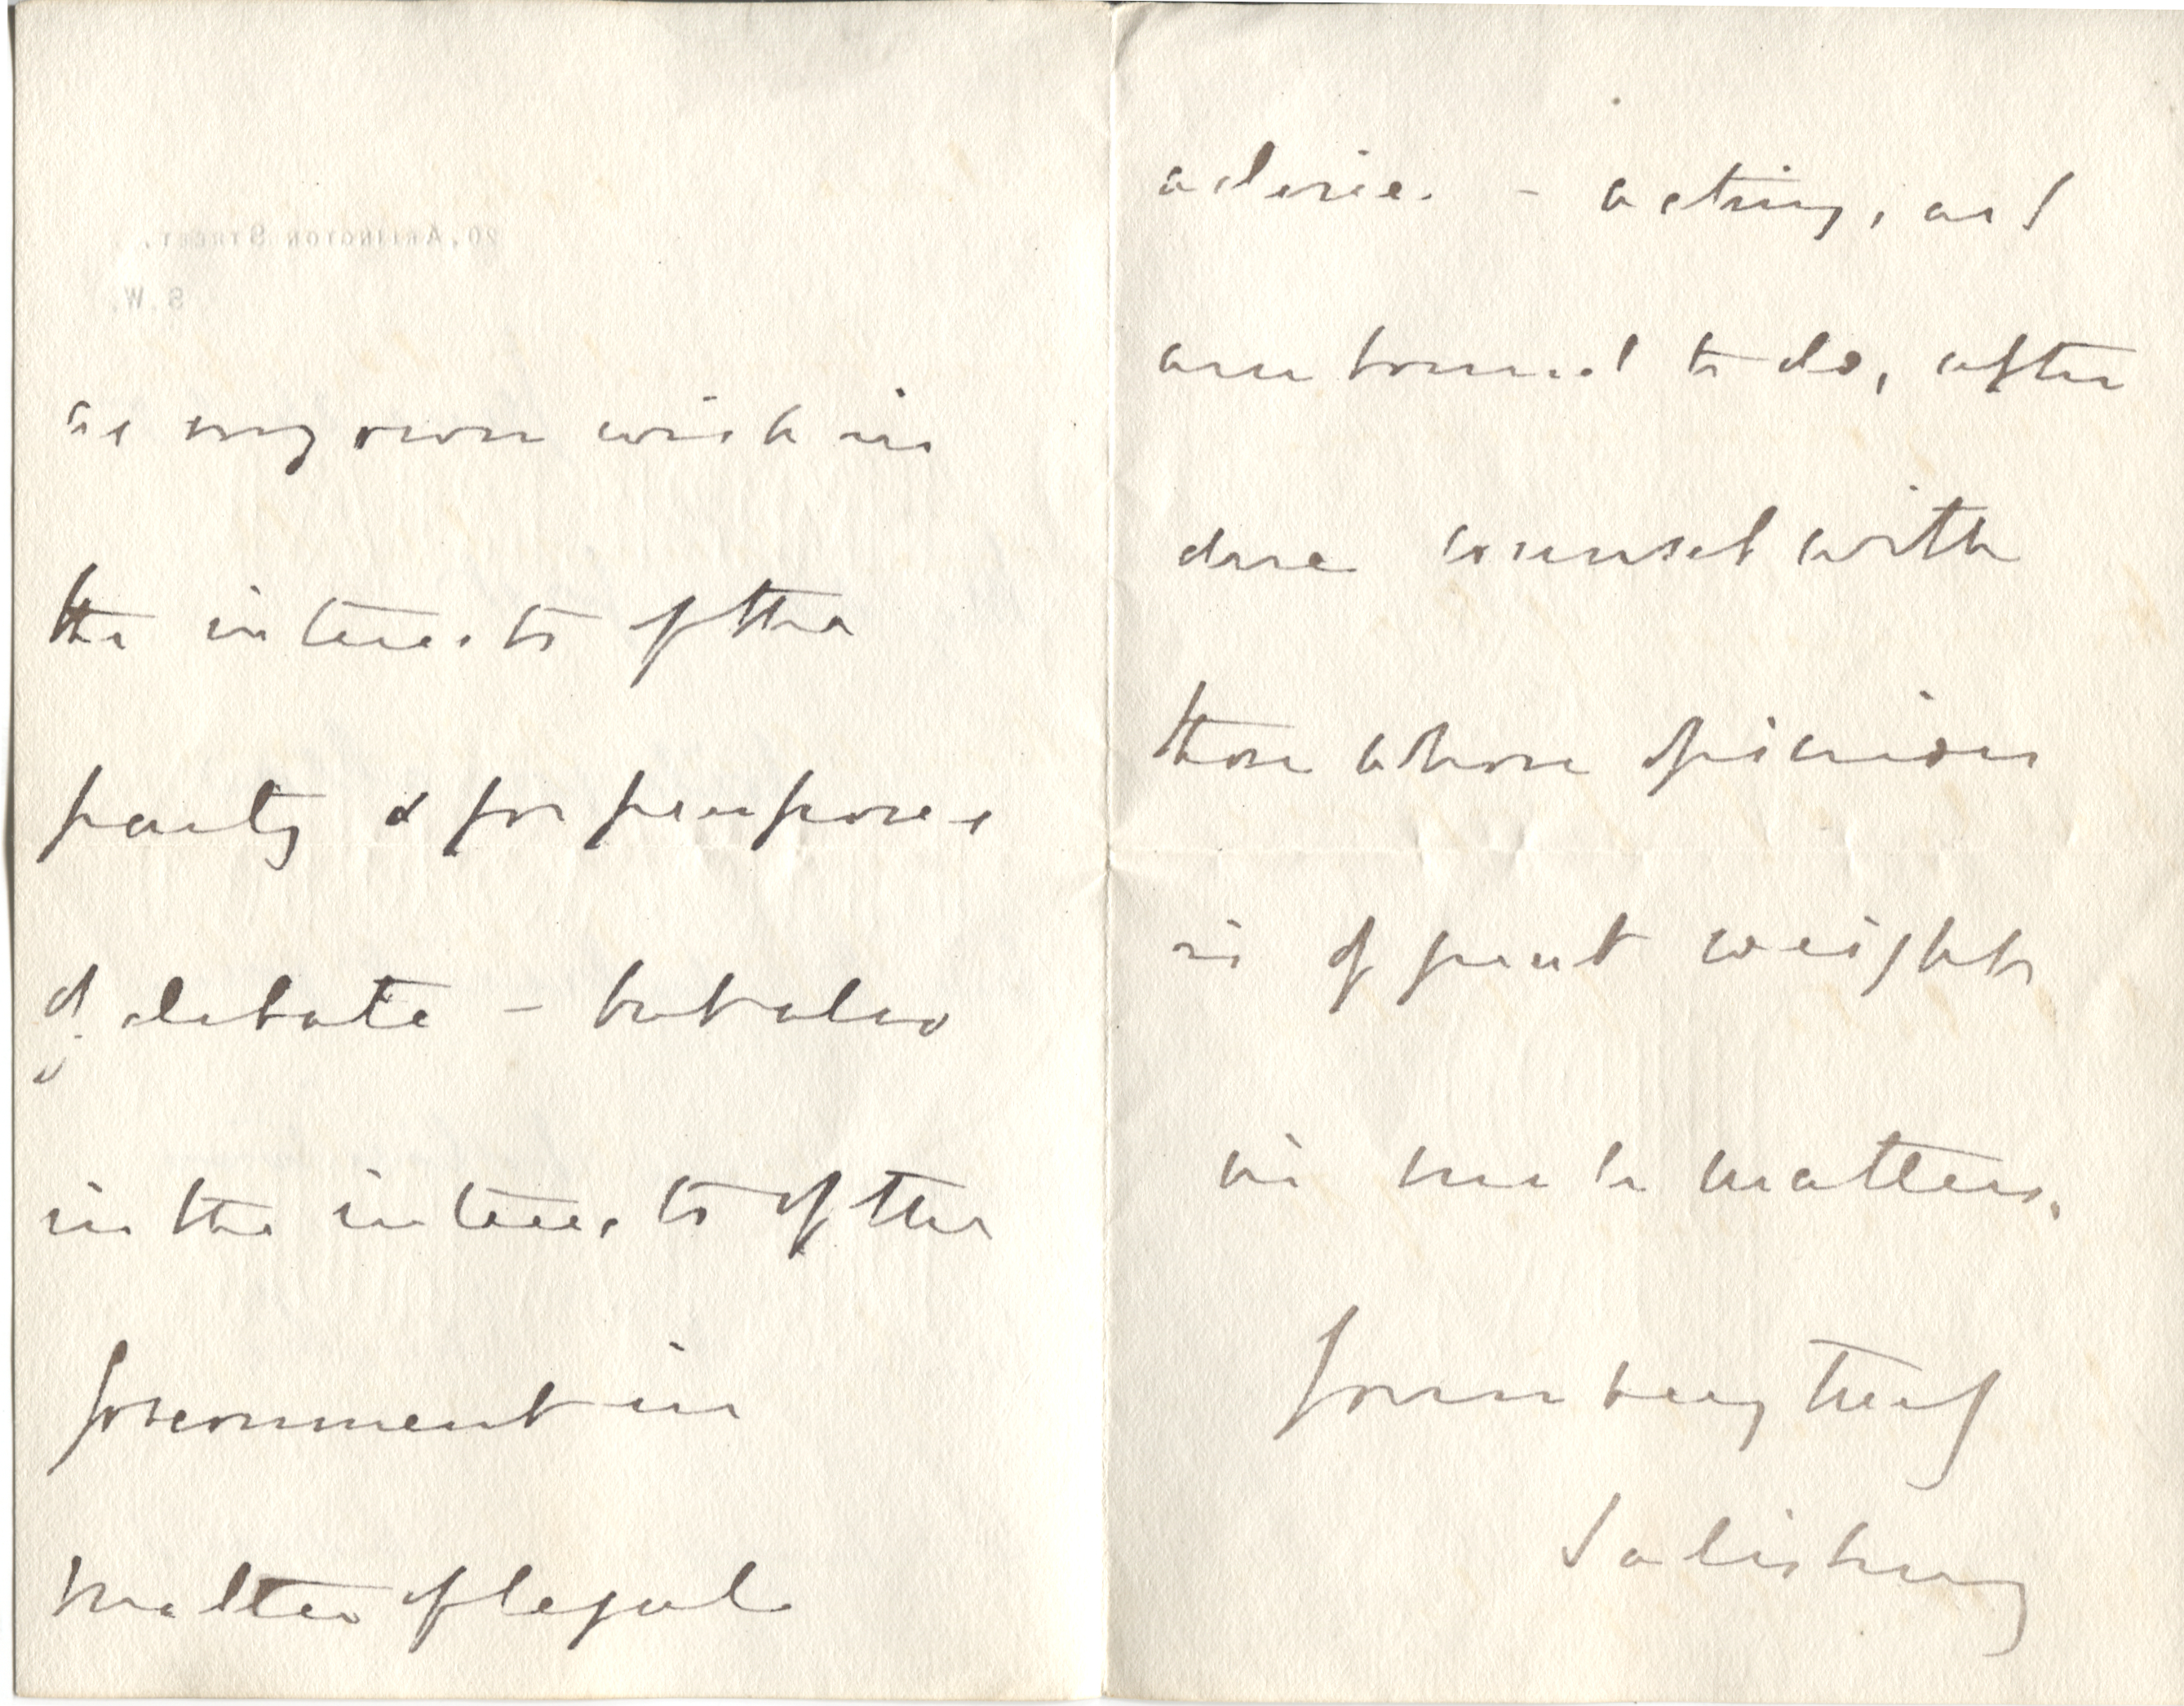 20, Arlington Street,
S.W.
as my own wish in
the interests of the
party & for purposes
of debate – but also
in the interests of the
Government in
matter of legal
advice. – acting, as I
am bound to do, after
due counsel with
those whose opinion
is of great weight
in such matters.
Yours very truly
Salisbury